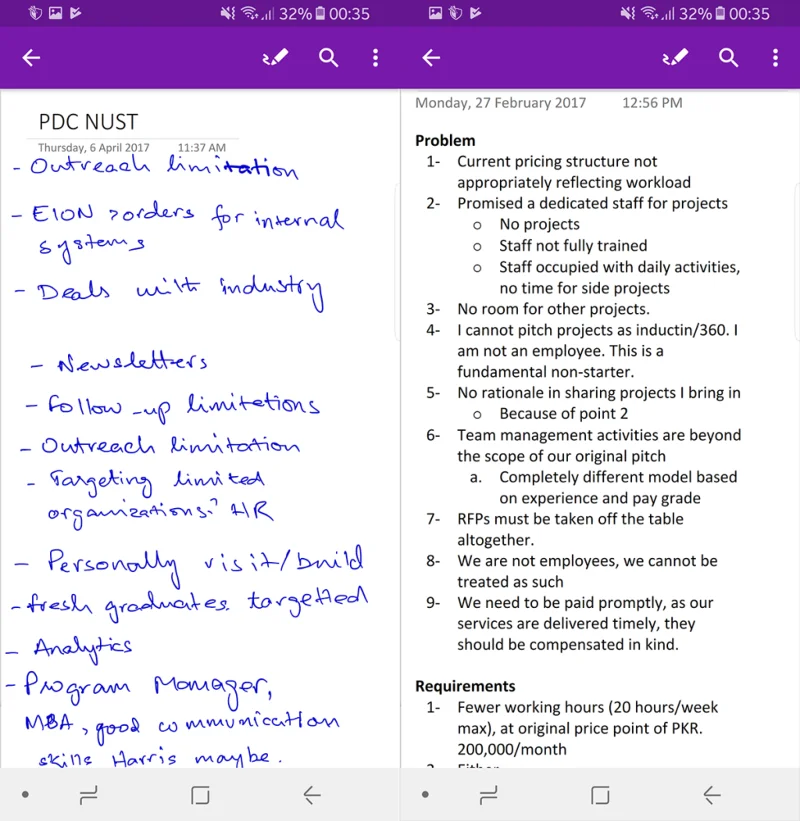 32% 00:35
PDC NUST
Thursday, 6 April 2017 11:37 AM
- Outreach limitation
- EION orders for internal
systems
- Deals with industry
- Newsletters
- Follow-up limitations
- Outreach limitation
- Targeting limited
organizations? HR
- Personally visit/build
- fresh graduates targetted
- Analytics
- Program Manager,
MBA, good communication
skills Harris maybe.
32% 00:35
Monday, 27 February 2017 12:56 PM
Problem
1- Current pricing structure not
appropriately reflecting workload
2- Promised a dedicated staff for projects
o No projects
o Staff not fully trained
o Staff occupied with daily activities,
no time for side projects
3- No room for other projects.
4- I cannot pitch projects as inductin/360. I
am not an employee. This is a
fundamental non-starter.
5- No rationale in sharing projects I bring in
o Because of point 2
6- Team management activities are beyond
the scope of our original pitch
a. Completely different model based
on experience and pay grade
7- RFPs must be taken off the table
altogether.
8- We are not employees, we cannot be
treated as such
9- We need to be paid promptly, as our
services are delivered timely, they
should be compensated in kind.
Requirements
1- Fewer working hours (20 hours/week
max), at original price point of PKR.
200,000/month